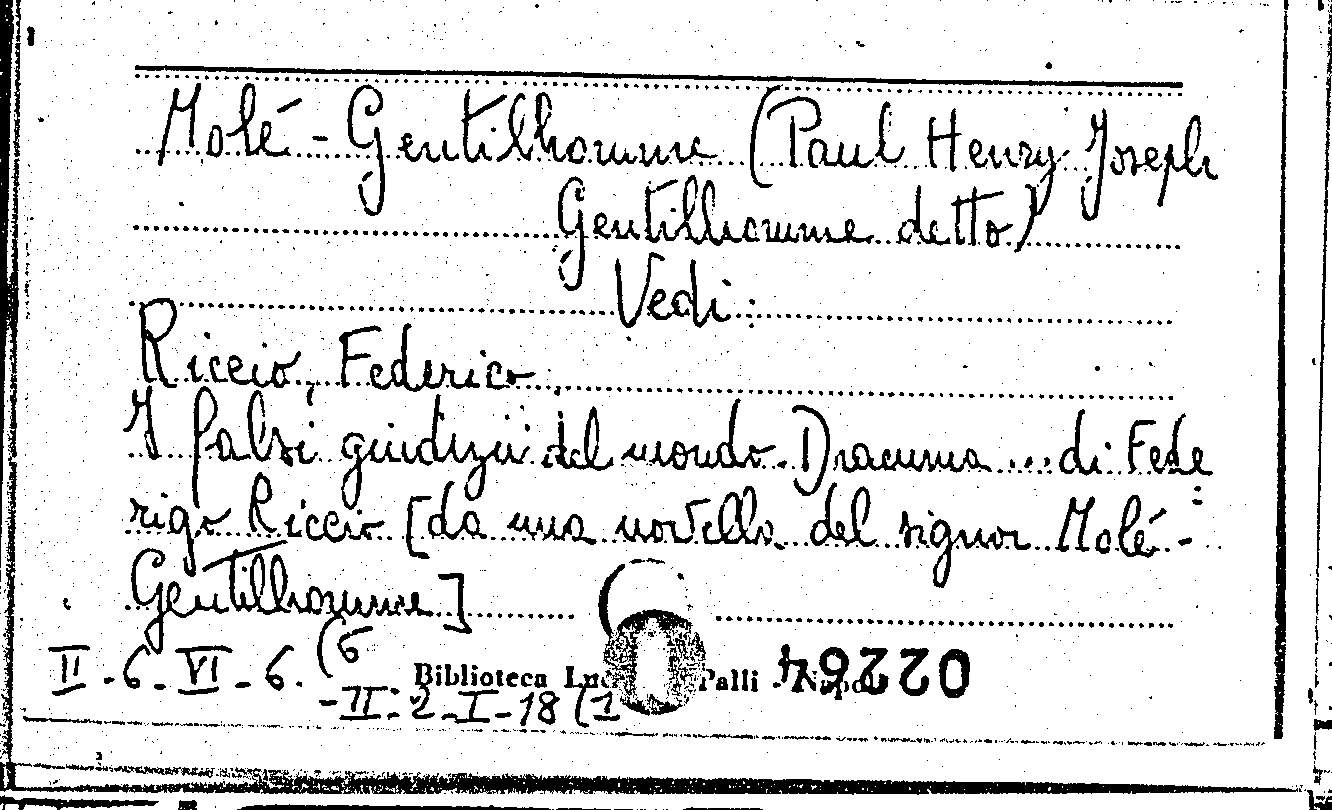 Molé-Gentilhomme (Paul Henry Joseph
Gentilhomme detto)
Vedi:
Riccio, Federico
I falsi giudizii del mondo. Dramma ... di Fede
rigo Riccio [da una novella del signor Molé-
Gentilhomme]
II-6-VI-6.(6
Biblioteca Palli - Napoli
-II-2-I-18(1
02264